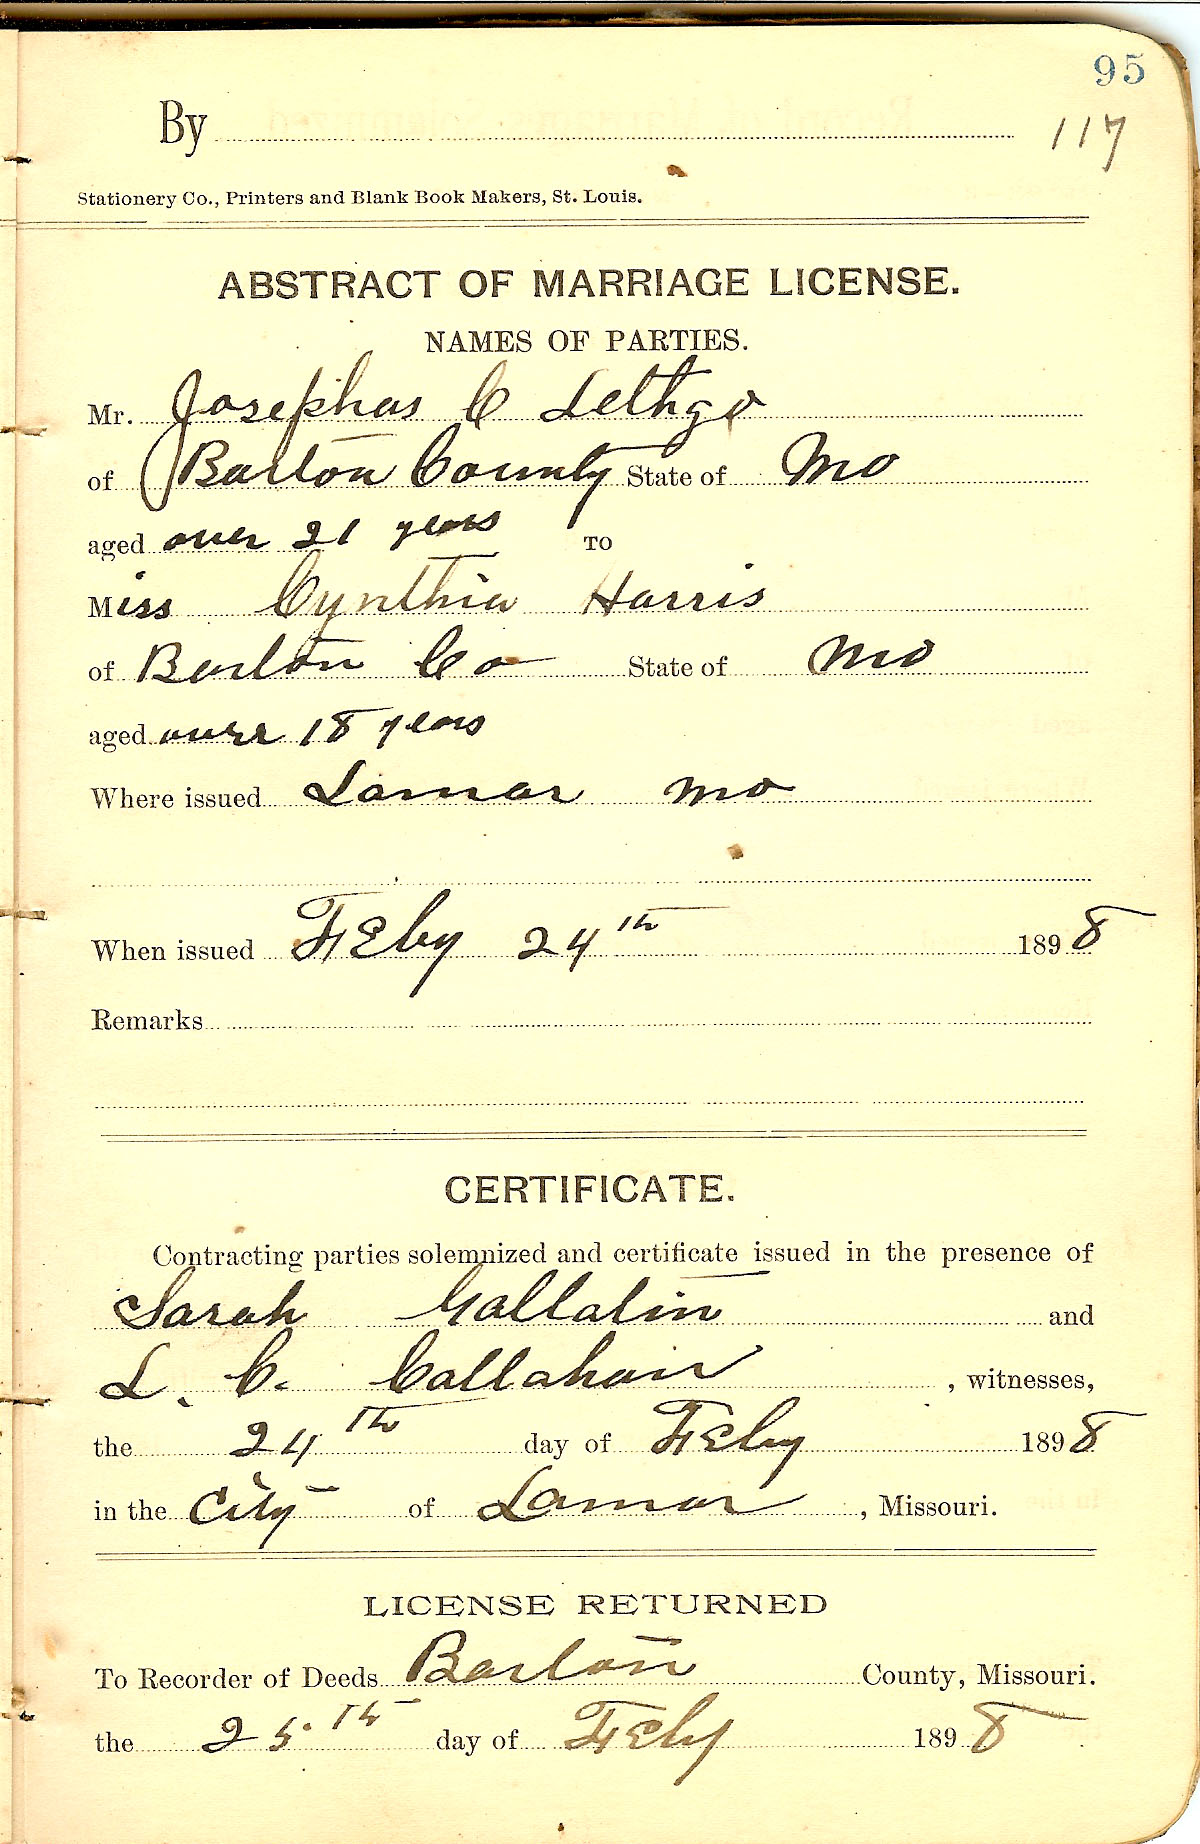 95
By
117
Stationery Co., Printers and Blank Book Makers, St. Louis.
ABSTRACT OF MARRIAGE LICENSE.
NAMES OF PARTIES.
Mr. Josephas C Lethgo
of Barton County State of Mo
aged over 21 years TO
Miss Cynthia Harris
of Barton Co State of Mo
aged over 18 years
Where issued Lamar Mo
When issued Feby 24th 1898
Remarks
CERTIFICATE.
Contracting parties solemnized and certificate issued in the presence of
Sarah Gallatin and
L. C. Callahan, witnesses,
the 24th day of Feby 1898
in the City of Lamar, Missouri.
LICENSE RETURNED
To Recorder of Deeds Barton County, Missouri.
the 25th day of Feby 1898